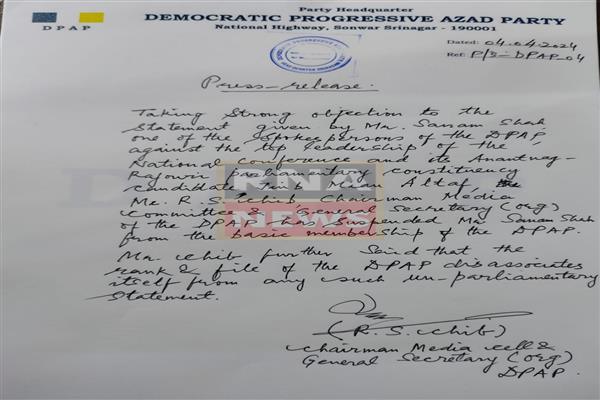 Party Headquarter
DEMOCRATIC PROGRESSIVE AZAD PARTY
National Highway, Sonwar Srinagar - 190001
DPAP
Dated: 04.04.2024
Ref: P/S-DPAP-04
Press-release.
Taking Strong objection to the
Statement given by Mr. Sanam Shah
one of the Spokespersons of the DPAP,
against the top leadership of the
National conference and its Anantnag-
Rajouri parliamentary constituency
candidate Janb Mian Altaf, the
Mr. R.S. Chib Chairman Media
Committee & General Secretary (org)
of the DPAP has suspended Mr Sanam Shah
from the basic membership of the DPAP.
Mr. Chib further Said that the
rank & file of the DPAP disassociates
itself from any such un-parliamentary
Statement.
(R.S. Chib)
Chairman Media cell &
General Secretary (org)
DPAP.
RNA
NEWS